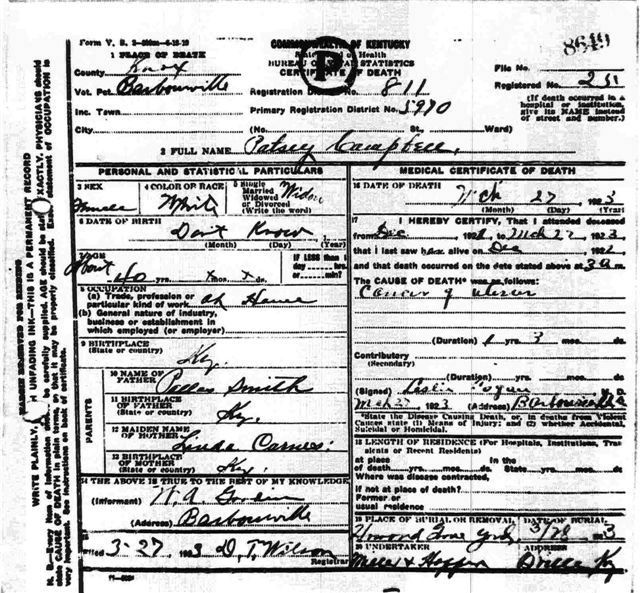 Form V. S.
COMMONWEALTH OF KENTUCKY
State Board of Health
BUREAU OF VITAL STATISTICS
CERTIFICATE OF DEATH
File No. 8649
Registered No. 211
(If death occurred in a hospital or institution, give its NAME instead of street and number.)
1 PLACE OF DEATH
County Knox
Vot. Pct. Barbourville
Registration District No. 811
Inc. Town
Primary Registration District No. 5970
City (No. St., Ward)
2 FULL NAME Patsey Campbell
PERSONAL AND STATISTICAL PARTICULARS
3 SEX
4 COLOR OR RACE White
5 Single Married Widowed or Divorced (Write the word) Widow
6 DATE OF BIRTH Don't Know
(Month) (Day) (Year)
7 AGE About 40 yrs. mos. ds.
If LESS than 1 day hrs. or min.?
8 OCCUPATION
(a) Trade, profession or particular kind of work At Home
(b) General nature of industry, business or establishment in which employed (or employer)
9 BIRTHPLACE
(State or country) Ky.
PARENTS
10 NAME OF FATHER Smith
11 BIRTHPLACE OF FATHER
(State or country) Ky.
12 MAIDEN NAME OF MOTHER Linda Carnes
13 BIRTHPLACE OF MOTHER
(State or country) Ky.
14 THE ABOVE IS TRUE TO THE BEST OF MY KNOWLEDGE
(Informant) W. A.
(Address) Barbourville
15 Filed 3-27 1923 D. T. Wilson
Registrar
MEDICAL CERTIFICATE OF DEATH
16 DATE OF DEATH Mch 27 1923
(Month) (Day) (Year)
17 I HEREBY CERTIFY, That I attended deceased
from Dec 192 to Mch 27 1923
that I last saw her alive on Dec 1922
and that death occurred on the date stated above at 3 a m.
The CAUSE OF DEATH* was as follows:
Cancer of uterus
(Duration) yrs. 3 mos. ds.
Contributory
(Secondary)
(Duration) yrs. mos. ds.
(Signed) Leslie Logan M. D.
Mch 27 1923 (Address) Barbourville
*State the Disease Causing Death, or, in deaths from Violent Causes state (1) Means of Injury; and (2) whether Accidental, Suicidal or Homicidal.
18 LENGTH OF RESIDENCE (For Hospitals, Institutions, Transients or Recent Residents)
At place of death yrs. mos. ds. In the State yrs. mos. ds.
Where was disease contracted,
if not at place of death?
Former or usual residence
19 PLACE OF BURIAL OR REMOVAL
DATE OF BURIAL 3/28 1923
20 UNDERTAKER
ADDRESS B'ville Ky
11-3184
MARGIN RESERVED FOR BINDING
WRITE PLAINLY, WITH UNFADING INK—THIS IS A PERMANENT RECORD
N. B.—Every item of information should be carefully supplied. AGE should be stated EXACTLY. PHYSICIANS should state CAUSE OF DEATH in plain terms, so that it may be properly classified. Exact statement of OCCUPATION is very important. See instructions on back of certificate.